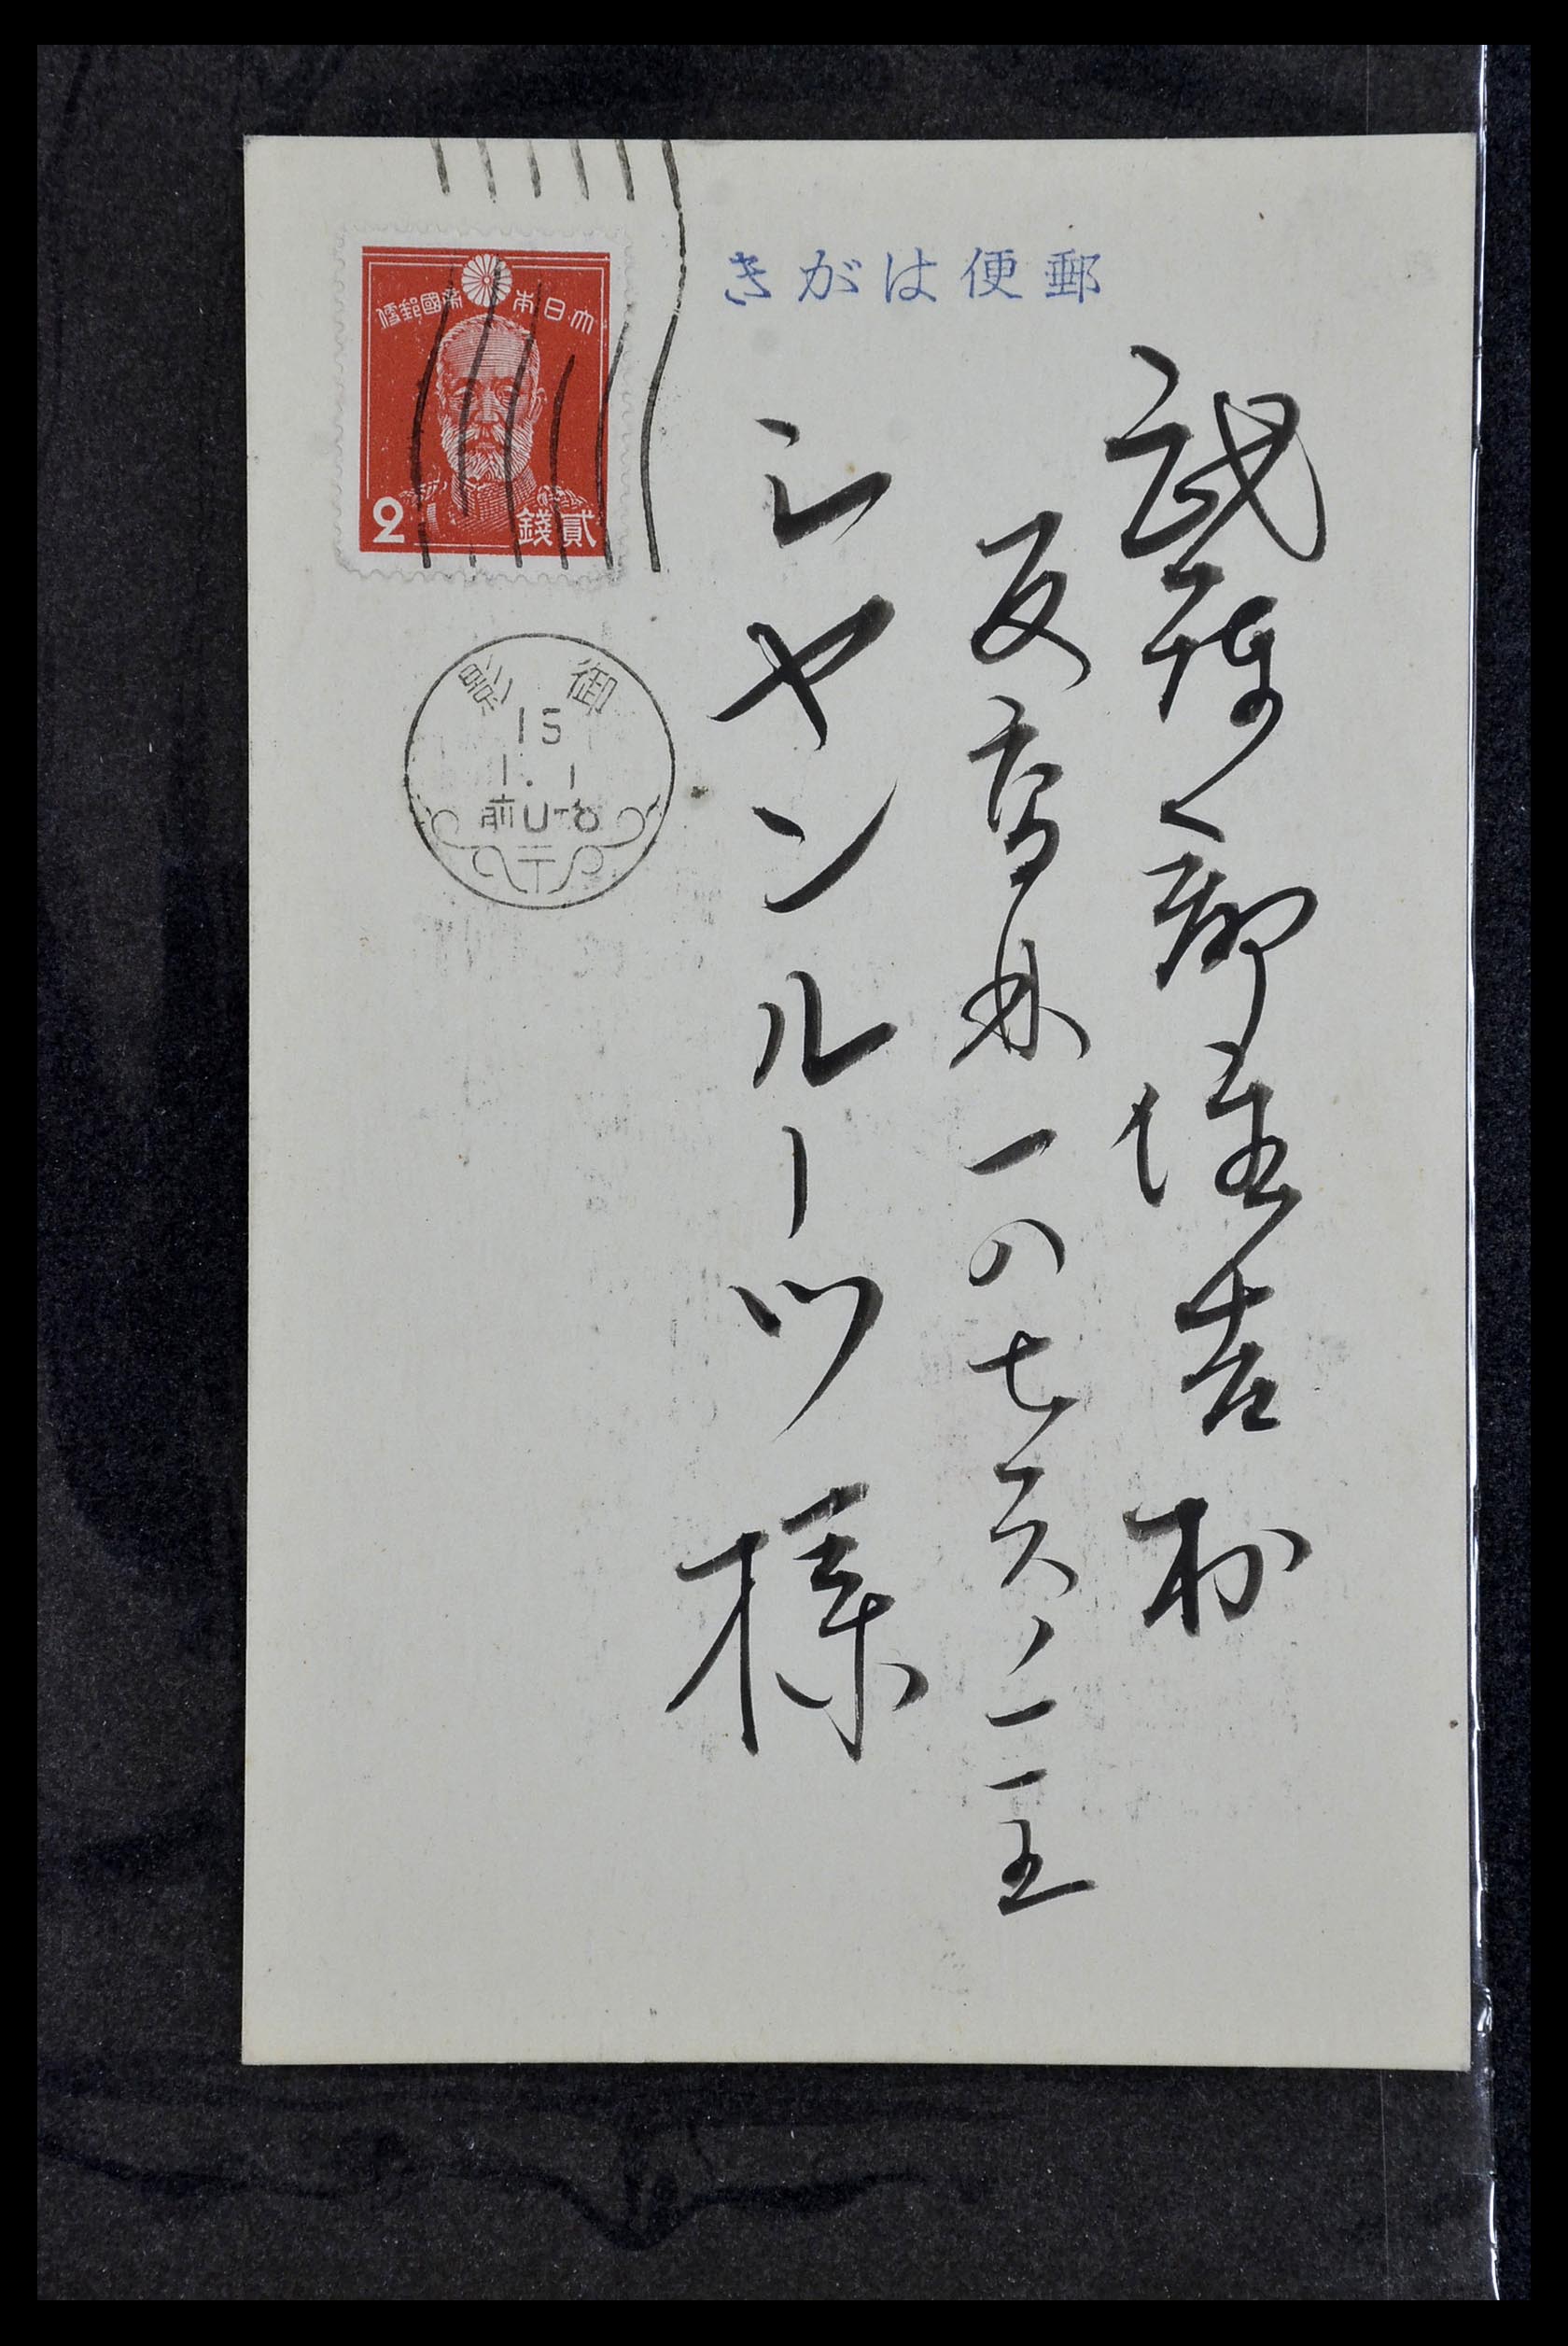 郵便はがき
大日本帝國郵便
2
貳錢
御影
15
1.1
前0-8
武庫郡住吉村
反高林一八七六ノ一五
シヤンルーツ様